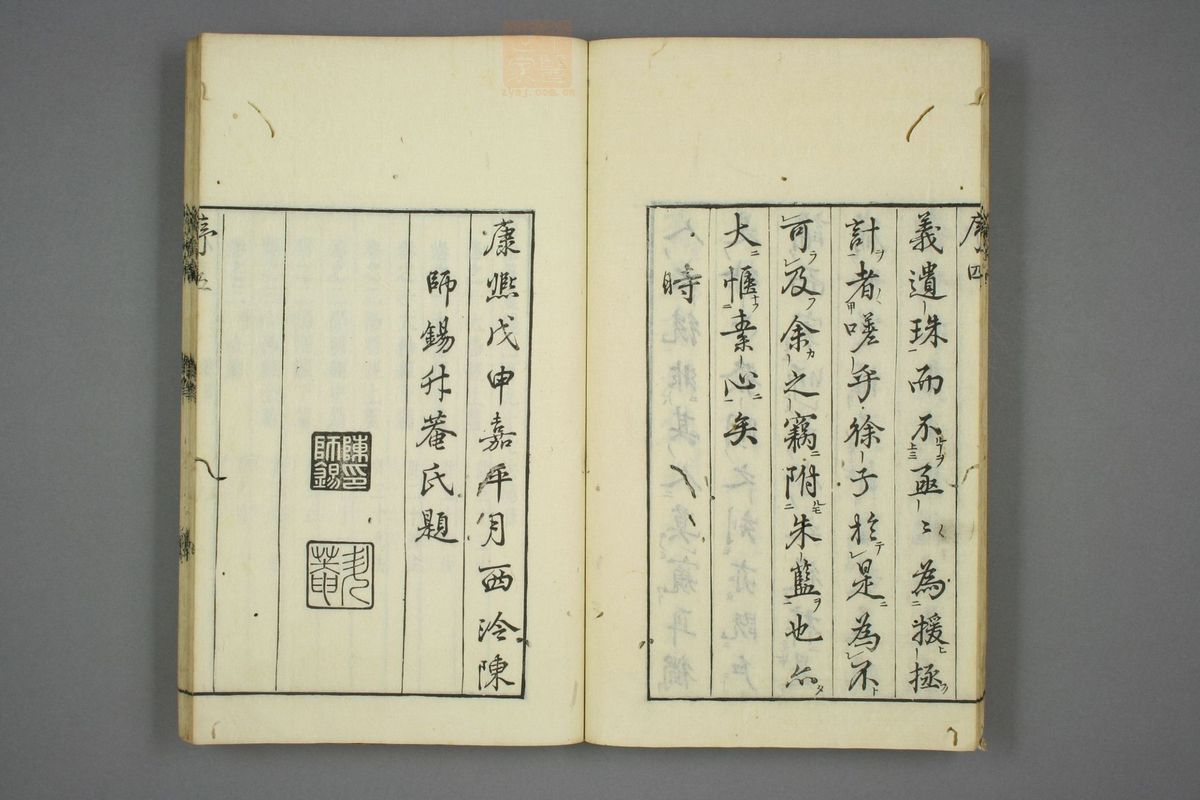 序 四
義遺珠而不亟〻為援拯
計者嗟乎徐子於是為不
可及余之竊附朱藍也亦
大愜素心矣
時
康熙戊申嘉平月西泠陳
師錫升菴氏題
陳印師錫
升菴
序 五
zysj.com.cn